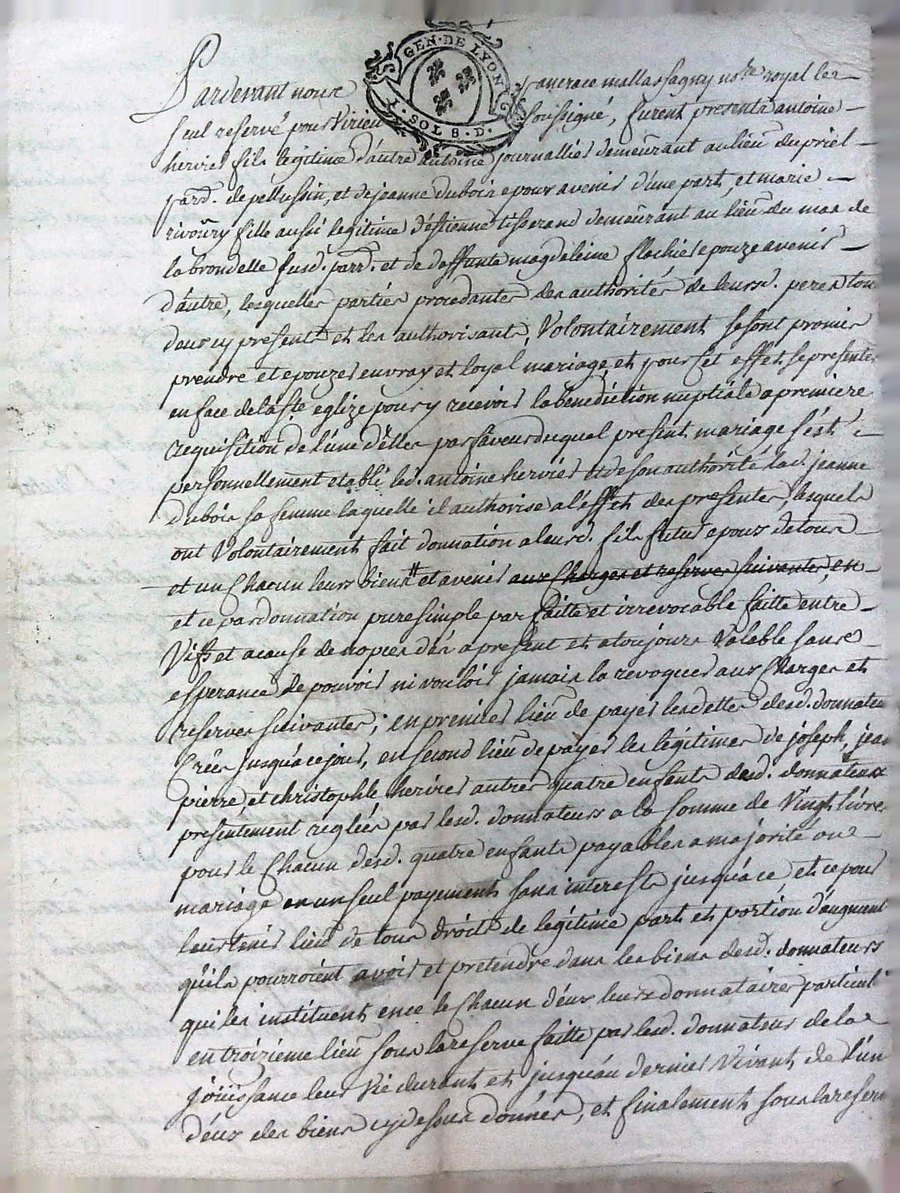 GEN · DE LYON
1 · SOL 8 · D ·
Pardevant nous pancrace mallassagny no.re royal
seul reservé pour Virieu soussigné, furent presents antoine
hervier fils legitime d'autre antoine journallier demeurant au lieu du priel
parr. de pellussin, et de jeanne dubois epoux avenir d'une part, et marie
rivoüry fille aussi legitime d'estienne tisserand demeurant au lieu du mas de
la brondelle susd. parr. et de deffunte magdeleine flachier epouze avenir
d'autre, lesquelles parties procedantes des authorités de leursd. peres tous
deux cy presents et les authorisants, Volontairement se sont promis
prendre et epouzer en vray et loyal mariage et pour cet effet se presenter
en face de la ste eglize pour y recevoir la benediction nuptiale a premiere
requisition de l'une d'elles par faveur duquel present mariage s'est
personnellement etabli led. antoine hervier et de son authorité lad. jeanne
dubois sa femme laquelle il authorise a l'effet des presentes, lesquels
ont Volontairement fait donnation a leurd. fils futur epoux de tous
et un Chacun leurs biens et avenir aux Charges et reserves suivantes, en
et ce par donnation pure simple parfaitte et irrevocable faitte entre
Vifs et a cause de noces d'es a present et a toujours Valable sans
esperance de pouvoir ni vouloir jamais la revoquer aux Charges et
reserves suivantes; en premier lieu de payer les dettes desd. donnateurs
Créés jusqu'a ce jour, en second lieu de payer les legitimes de joseph, jean
pierre et christophle hervier autres quatre enfants desd. donnateurs
presentement reglées par lesd. donnateurs a la somme de Vingt livres
pour le Chacun desd. quatre enfants payables a majorité ou
mariage en un seul payement sans interests jusqu'a ce et ce pour
leur tenir lieu de tous droits de legitime part et portion d'augment
qu'ils pourroient avoir et pretendre dans les biens desd. donnateurs
qui les instituent en ce le Chacun d'eux leurs donnataires particuli
en troizieme lieu sous la reserve faitte par lesd. donnateurs de la
joüissance leur vie durant et jusqu'au dernier Vivant de l'un
d'eux des biens cy dessus donnés, et finalement sous la reserve